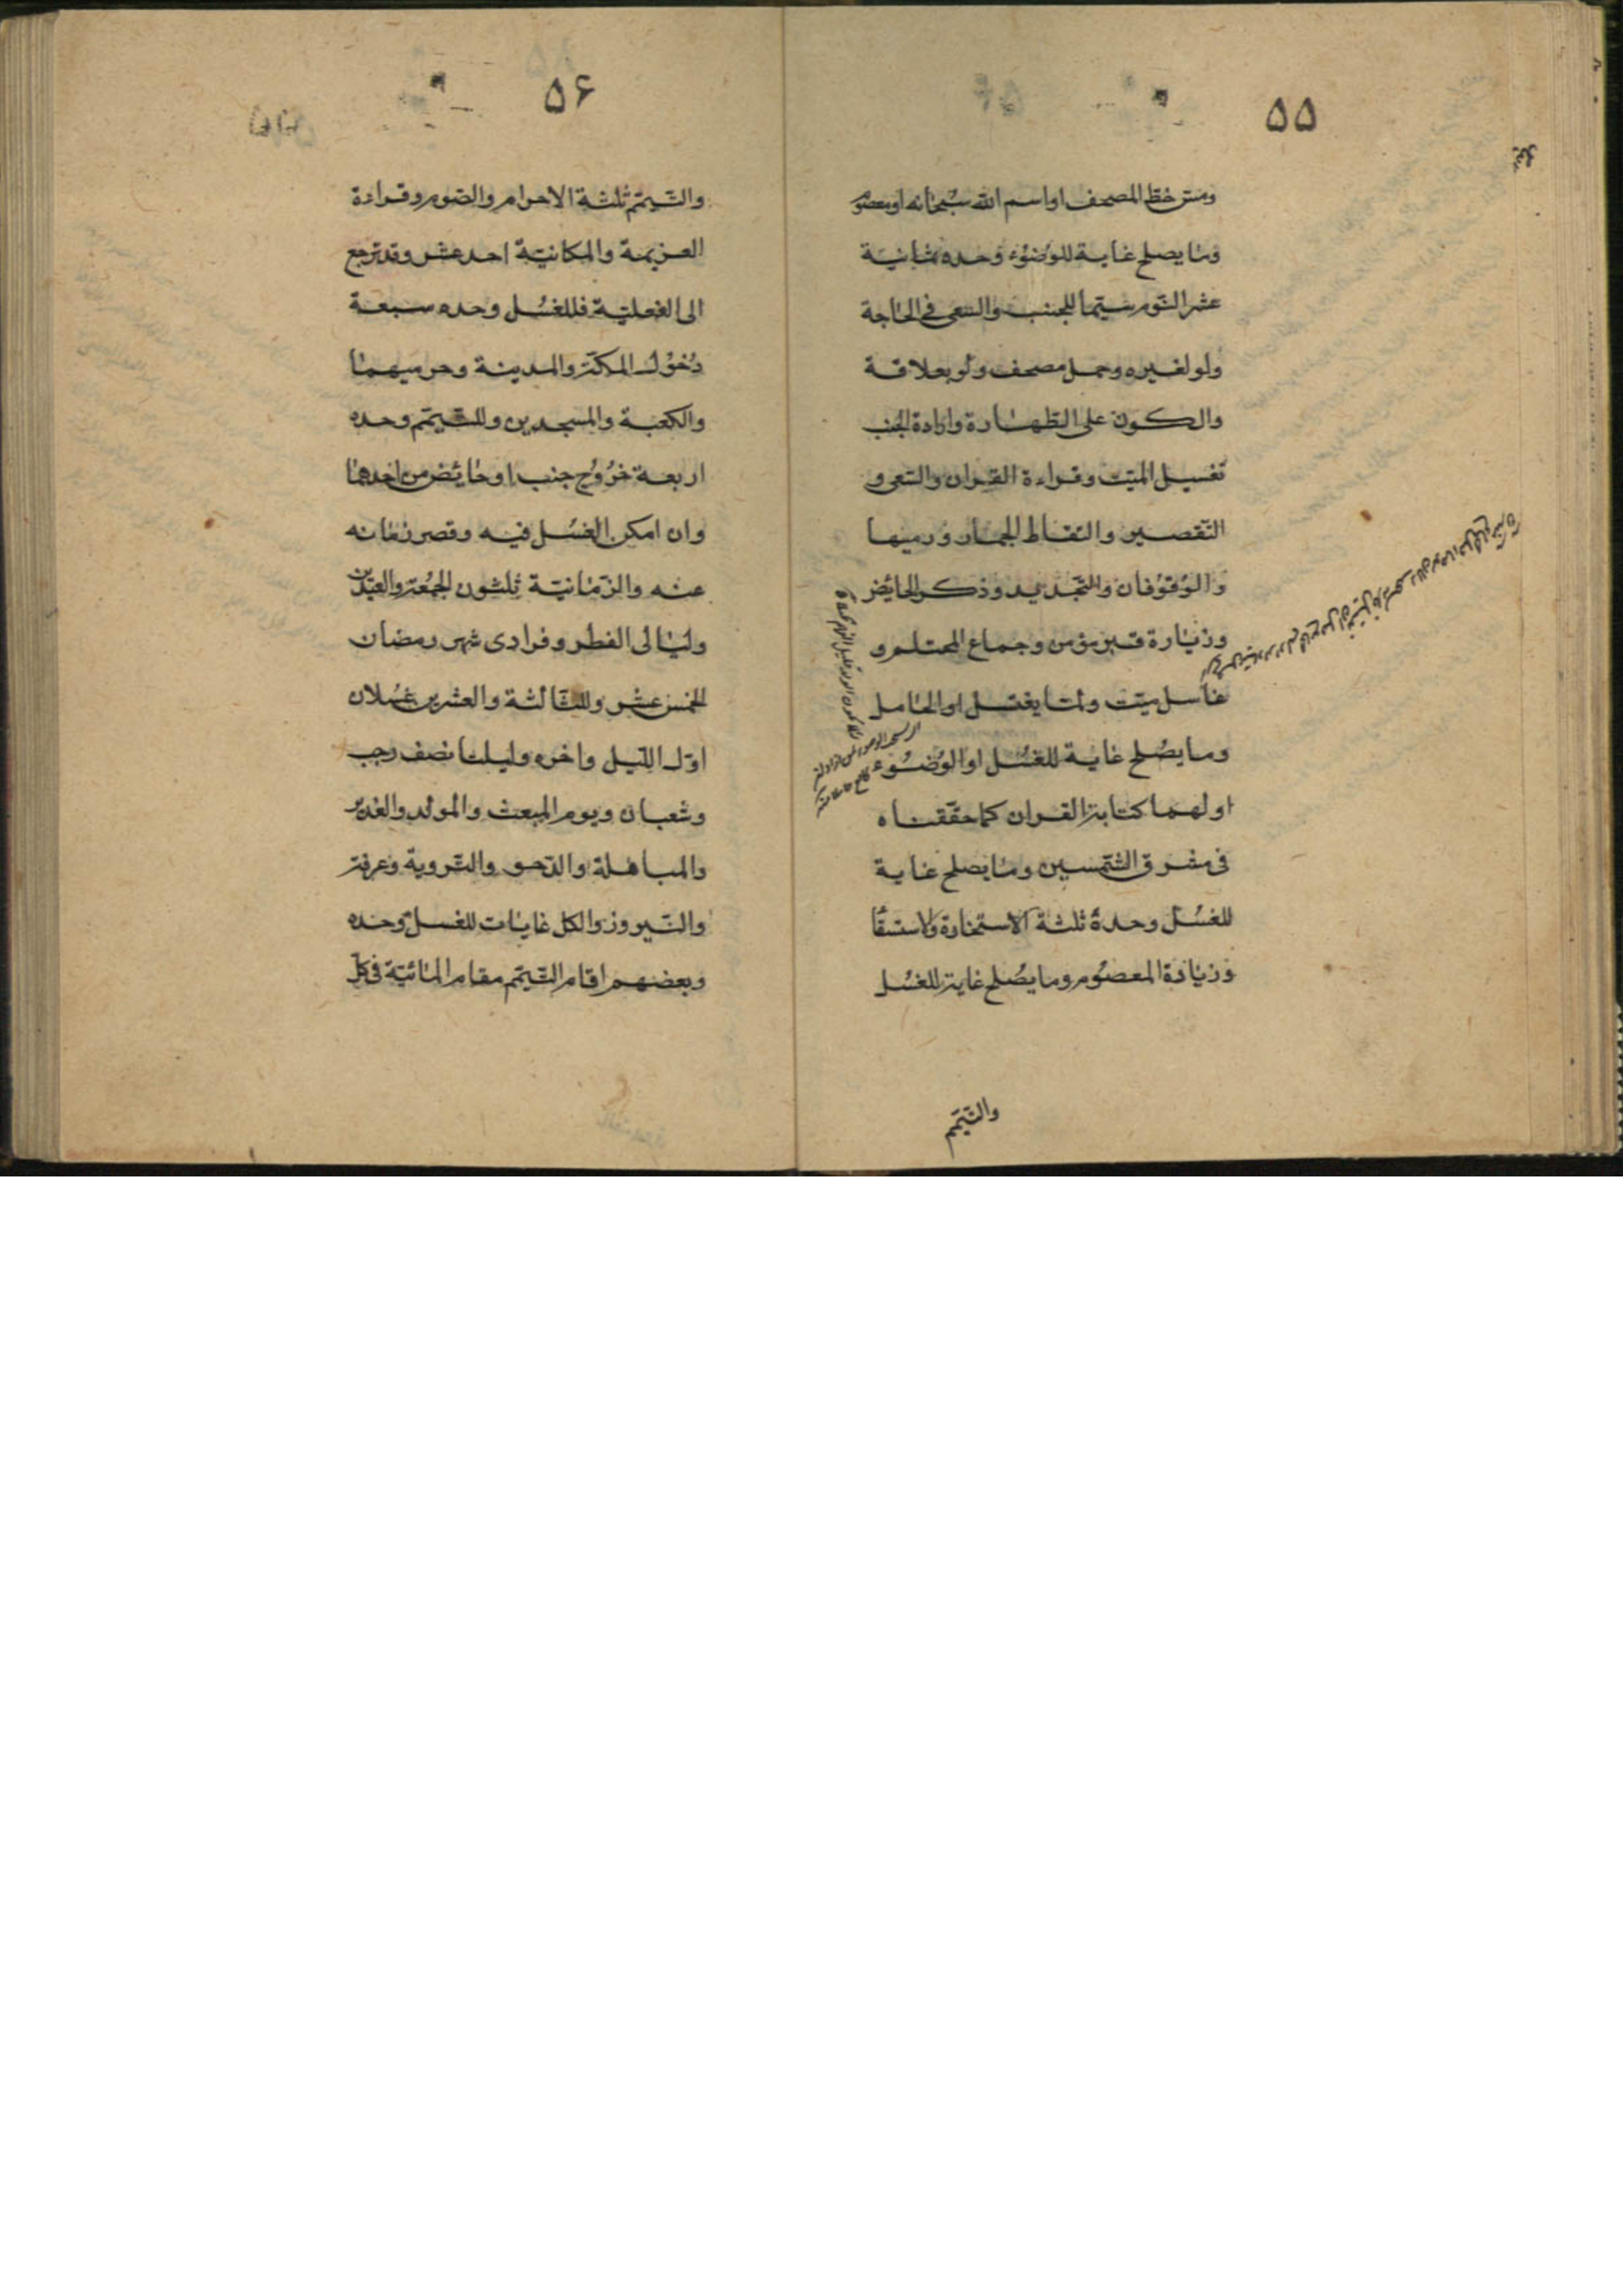 ۵۵
ومس خط المصحف او اسم الله سبحانه او معصوم
وما يصلح غاية للوضوء وحده ثمانية
عشر النوم سيما للجنب والسعى فى الحاجة
ولو لغيره وحمل مصحف ولو بعلاقة
والكون على الطهارة وارادة الجنب
تغسيل الميت وقراءة القران والسعى و
التقصير والتقاط الجمار ورميها
والوقوفان والتجديد وذكر الحائض
وزيارة قبر مؤمن وجماع المحتلم و
غاسل ميت ولما يغتسل او الحامل
وما يصلح غاية للغسل او الوضوء
او لهما كتابة القران كما حققناه
فى مشرق الشمسين وما يصلح غاية
للغسل وحدة ثلثة الاستخارة والاستسقا
وزيادة المعصوم وما يصلح غاية للغسل
والتيمم
۵۶
والتيمم ثلثة الاحرام والصوم وقراءة
العزيمة والمكانية احد عشر وقد ترجع
الى الفعلية فللغسل وحده سبعة
دخول المكة والمدينة وحرميهما
والكعبة والمسجدين وللتيمم وحده
اربعة خروج جنب او حائض من احدهما
وان امكن الغسل فيه وقصر زمانه
عنه والزمانية ثلثون الجمعة والعيدين
وليالى الفطر وفرادى شهر رمضان
الخمس عشر وللثالثة والعشرين غسلان
اول الليل واخره وليلتا نصف رجب
وشعبان ويوم المبعث والمولد والغدير
والمباهلة والدحو والتروية وعرفة
والنيروز والكل غايات للغسل وحده
وبعضهم اقام التيمم مقام المائية فى كل